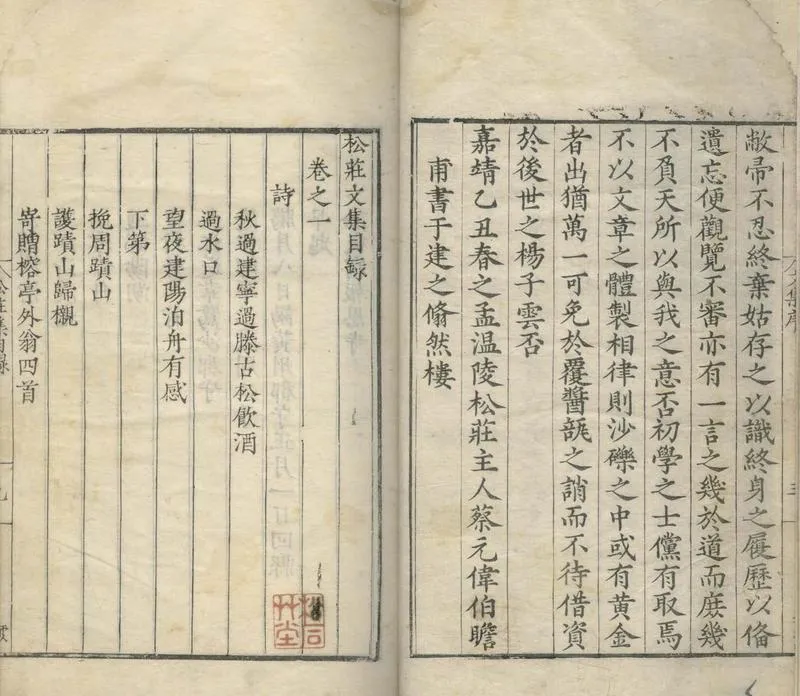 敝帚不忍終棄姑存之以識終身之履歷以俻
遺忘便觀覽不審亦有一言之幾於道而庶幾
不負天所以與我之意否初學之士儻有取焉
不以文章之體製相律則沙礫之中或有黃金
者出猶萬一可免於覆醬瓿之誚而不待借資
於後世之楊子雲否
嘉靖乙丑春之孟溫陵松莊主人蔡元偉伯瞻
甫書于建之翛然樓
松莊文集目録
卷之一
詩
秋過建寧過滕古松飲酒
過水口
望夜建陽泊舟有感
下第
挽周蹟山
護蹟山歸櫬
寄贈榕亭外翁四首